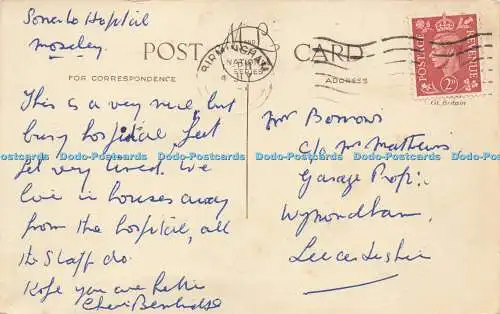 Hospital
Moseley
POST CARD
BIRMINGHAM
NATION
SERIES
FOR CORRESPONDENCE
ADDRESS
POSTAGE
REVENUE
2D
Gt. Britain
This is a very nice, but
busy hospital, feet
get very tired. We
live in houses away
from the hospital, all
the staff do.
Hope you are better
Mr
c/o Mr Mathews
Garage Prop:
Wymondham
Leicestershire
Dodo-Postcards Dodo-Postcards Dodo-Postcards Dodo-Postcards Dodo-Postcards Dodo-Postcards